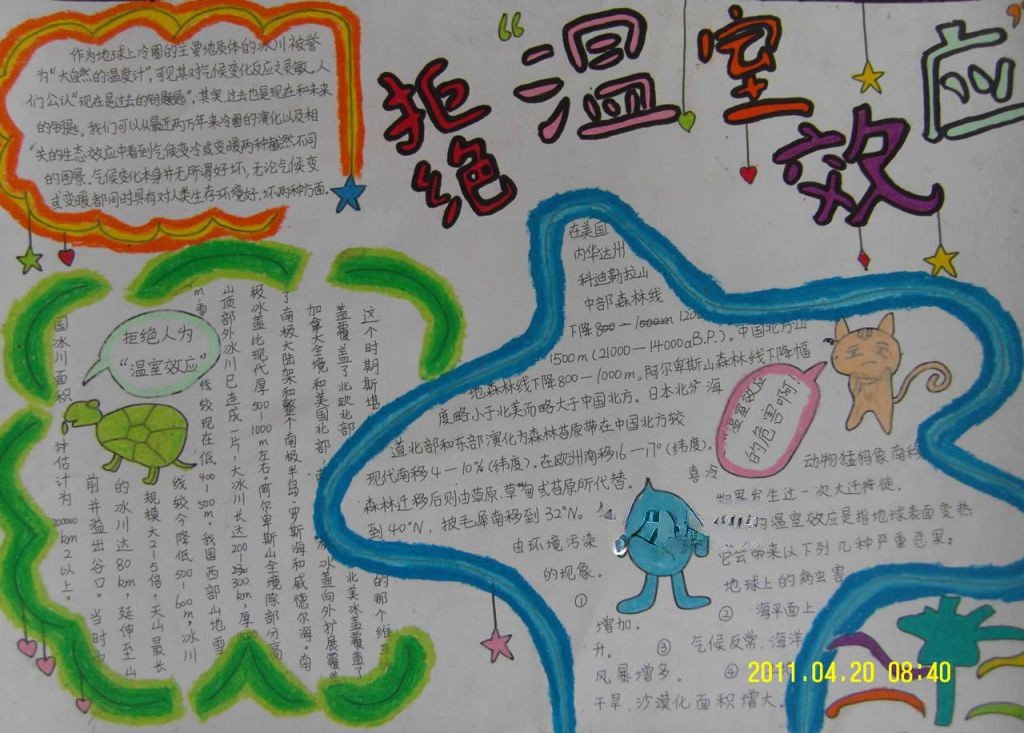 拒绝“温室效应”
作为地球上冷圈的主要地质体的冰川被誉
为“大自然的温度计”，可见其对气候变化反应之灵敏。人
们公认“现在是过去的钥匙”，其实，过去也是现在和未来
的钥匙。我们可以从最近两万年来冷圈的演化以及相
关的生态效应中看到气候变冷或变暖两种截然不同
的图景。气候变化本身并无所谓好坏，无论气候变
或变暖都同时具有对人类生存环境好、坏两种方面
拒绝人为
“温室效应”
这个时期斯堪
盖覆盖了北欧北部
加拿大全境和美国北部
了南极大陆架和整个南极半岛、罗斯海和威德尔海。南
极冰盖比现代厚500-1000m左右。阿尔卑斯山全境除部分高
山顶部外冰川已连成一片，大冰川长达200-300km，厚
线较现在低400 500m 我国西部山地雪
线较今降低500-600m，冰川
规模大2-5倍，天山最长
的冰川达80km，延伸至山
前并溢出谷口。当时中
国冰川面积 评估计为 km2以上。
在美国
内华达州
科迪勒拉山
中部森林线
下降800-1000m 1200
1500m(21000-14000aB.P.)。中国北方山
地森林线下降800-1000m。阿尔卑斯山森林线下降幅
度略小于北美而略大于中国北方。日本北海
道北部和东部演化为森林苔原带在中国北方较
现代南移4-10%(纬度)。在欧洲南移16-17°(纬度)。
森林迁移后则由草原、草甸或苔原所代替。
喜冷
动物猛犸象南移
到40°N，披毛犀南移到32°N。
“温室效应”
的危害啊！
物界发生过一次大迁徙。
由环境污染
的温室效应是指地球表面变热
的现象。
它会带来以下列几种严重恶果：
① 地球上的病虫害
增加。
② 海平面上
升。
③ 气候反常，海洋
风暴增多。
④
干旱，沙漠化面积增大。
2011.04.20 08:40